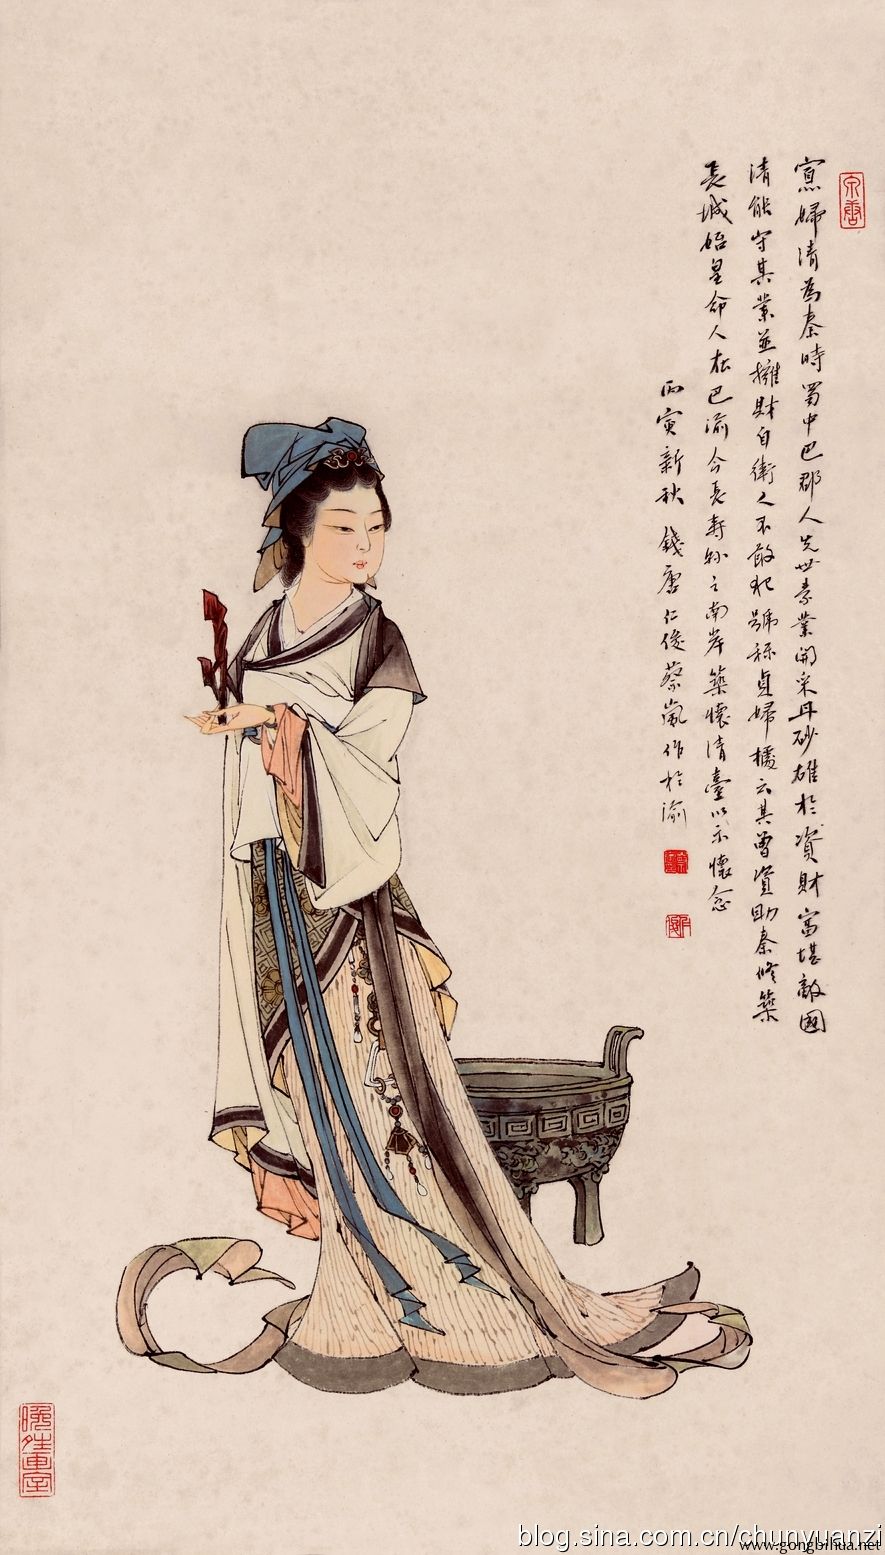 寡婦清為秦時蜀中巴郡人先世素業開采丹砂雄於資財富堪敵國
清能守其業並擁財自衛人不敢犯號称貞婦據云其曾資助秦修築
長城始皇命人在巴渝今長壽縣之南岸築懷清臺以示懷念
丙寅新秋 錢唐仁俊蔡嵐作於渝
晚/画室
blog.sina.com.cn/chunyuanzi
www.gongbihua.net